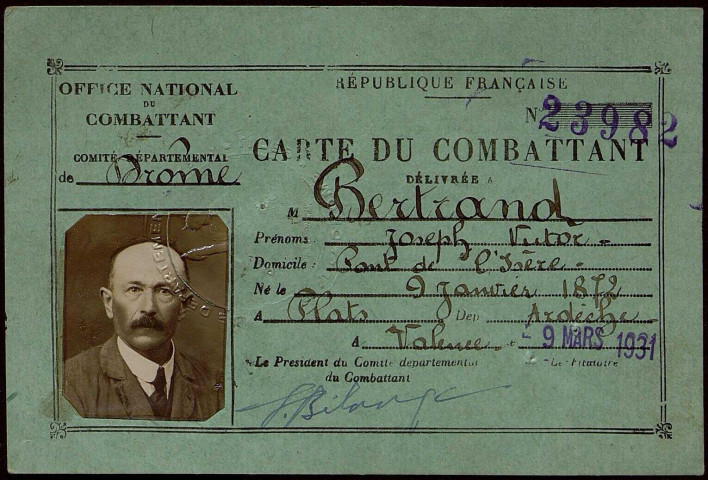 OFFICE NATIONAL
DU
COMBATTANT
COMITÉ DÉPARTEMENTAL
de Drôme
RÉPUBLIQUE FRANÇAISE
N° 23982
CARTE DU COMBATTANT
DÉLIVRÉE A
M Bertrand
Prénoms: Joseph Victor
Domicile: Pont de l'Isère
Né le 9 Janvier 1872
A Plats Dep Ardèche
A Valence - 9 MARS 1931
Le President du Comite départemental
du Combattant
Le Titulaire